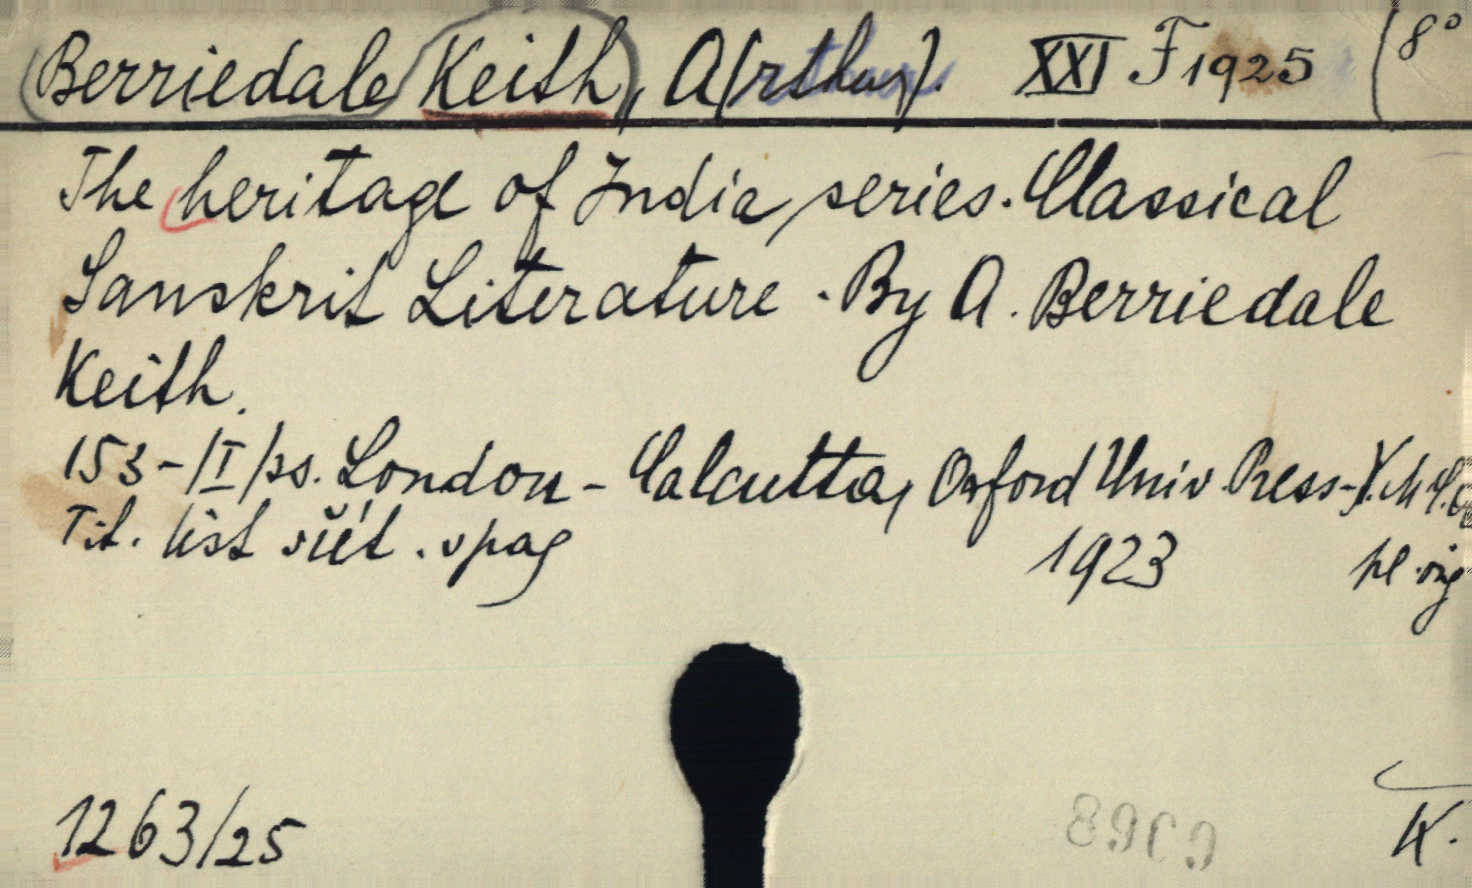 Berriedale Keith, A(rthur). XXI F 1925 (8°
The heritage of India, series. Classical
Sanskrit Literature. By A. Berriedale
Keith.
153-/I/ss. London - Calcutta, Oxford Univ. Press-Y.M.C.
Tit. list včít. v pag
1923
1263/25
K.